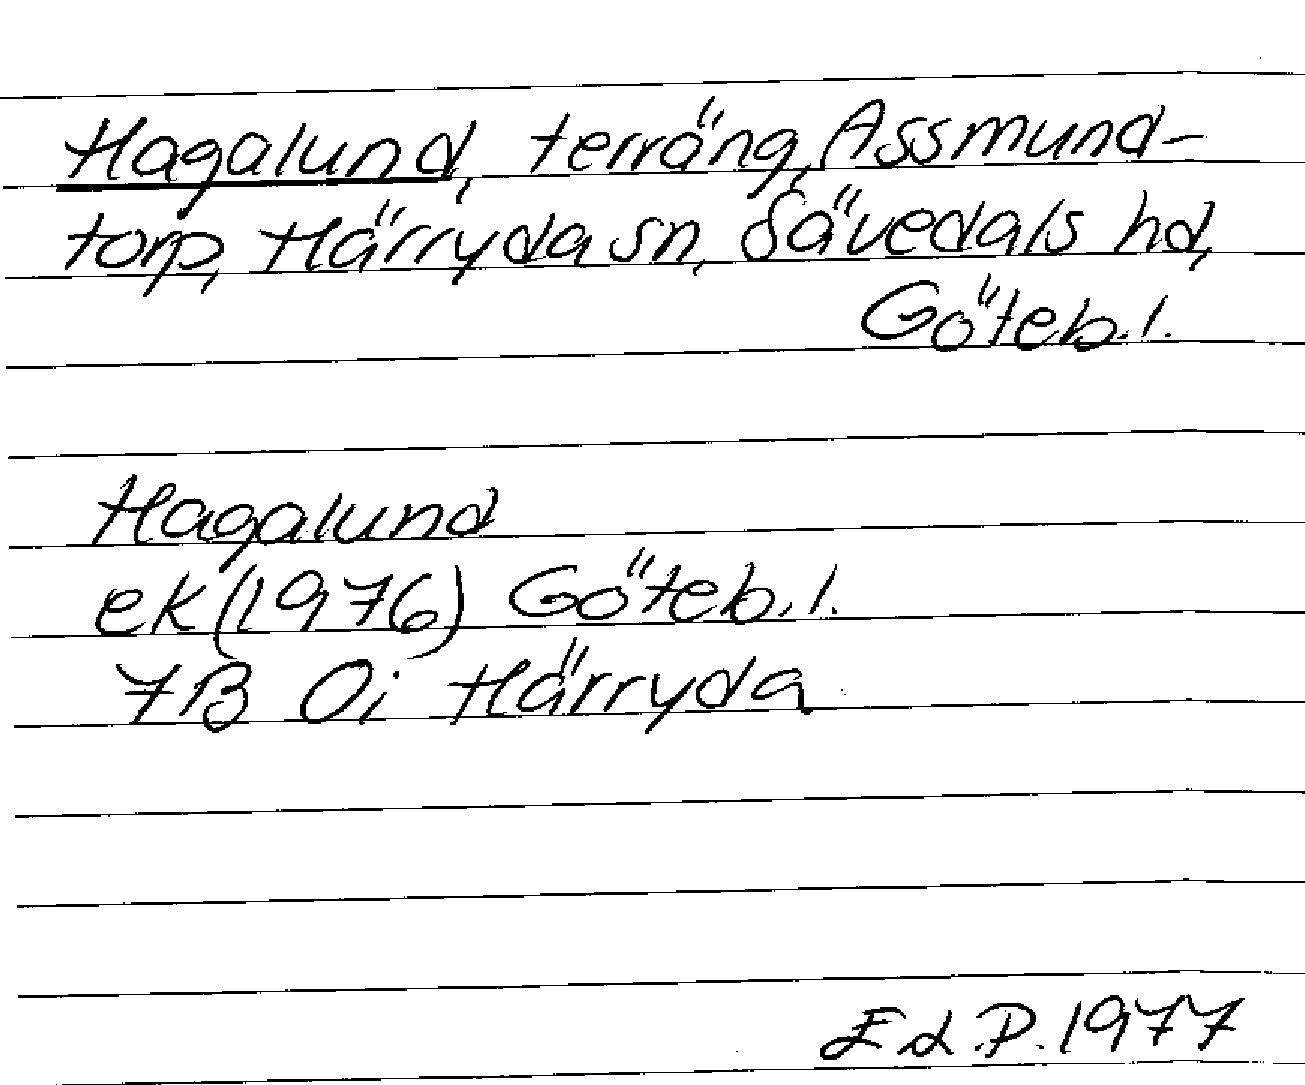 Hagalund, terräng, Assmund-
torp, Härryda sn, Sävedals hd,
Göteb. l.
Hagalund
ek (1976) Göteb. l.
7B 0i Härryda
Ed.P. 1977